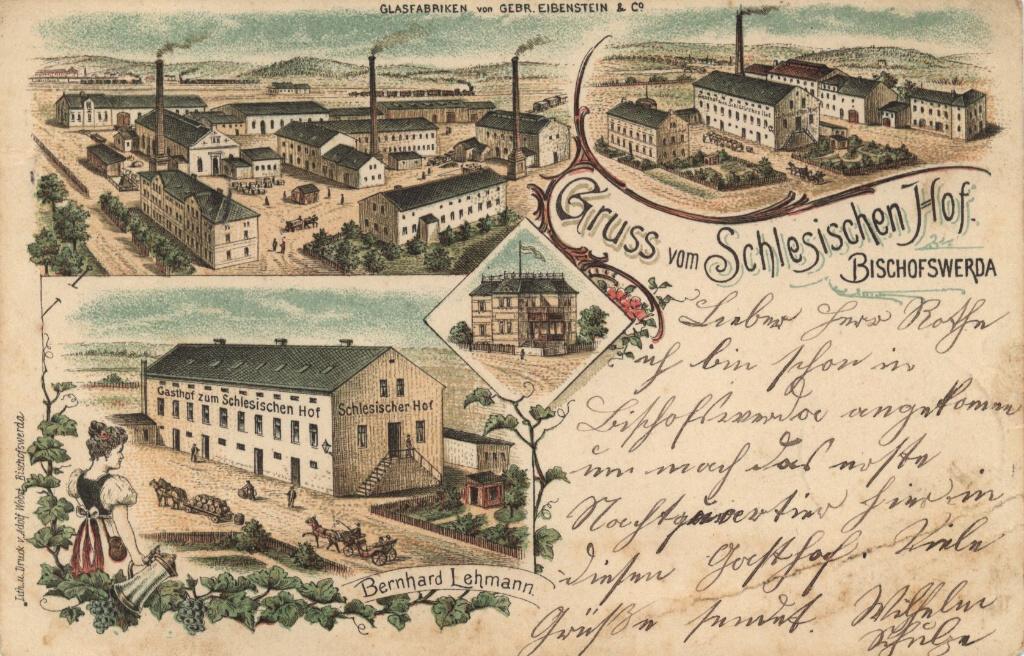 GLASFABRIKEN von GEBR. EIBENSTEIN & Co
Gruss vom Schlesischen Hof.
BISCHOFSWERDA
Lieber Herr Rothe
ich bin schon in
Bischofswerda angekomen
um mach das erste
Nachtquertier hier in
diesen Gasthof. Viele
Grüße sendet. Wilhelm
Schulze
Gasthof zum Schlesischen Hof
Schlesischer Hof
Bernhard Lehmann.
Lith. u. Druck v. Adolf Wehst Bischofswerda